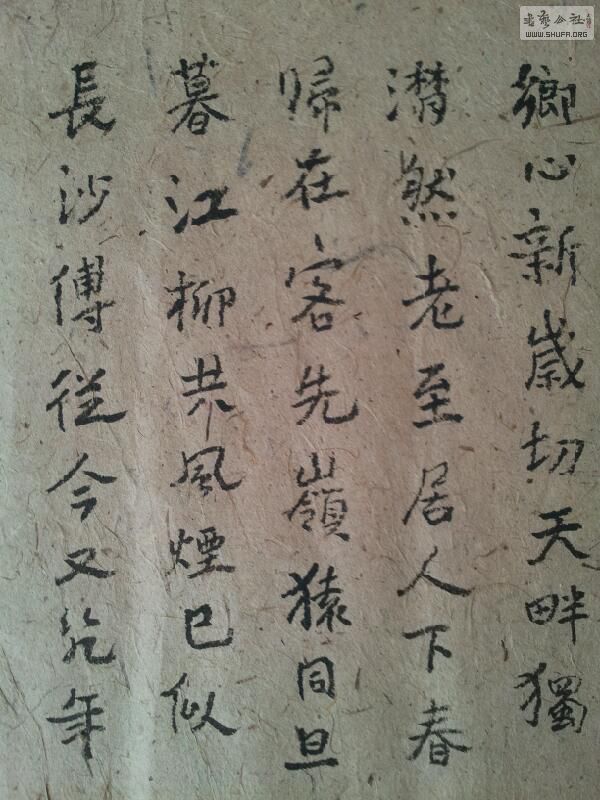 鄉心新歲切天畔獨
潸然老至居人下春
歸在客先嶺猿同旦
暮江柳共風煙已似
長沙傅從今又幾年
書藝公社
WWW.SHUFA.ORG